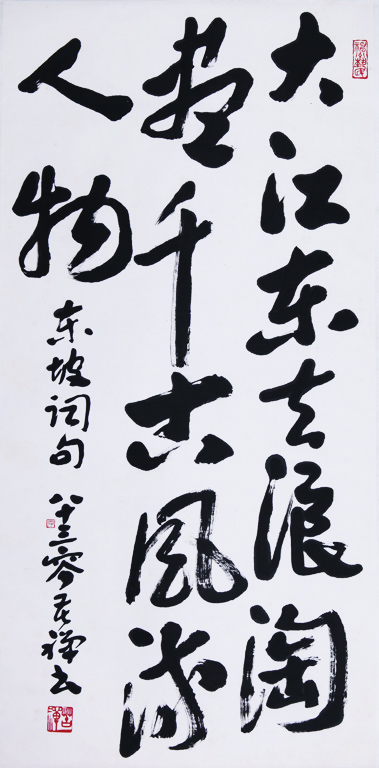 大江东去浪淘
盡千古風流
人物
东坡词句 八十三禅书